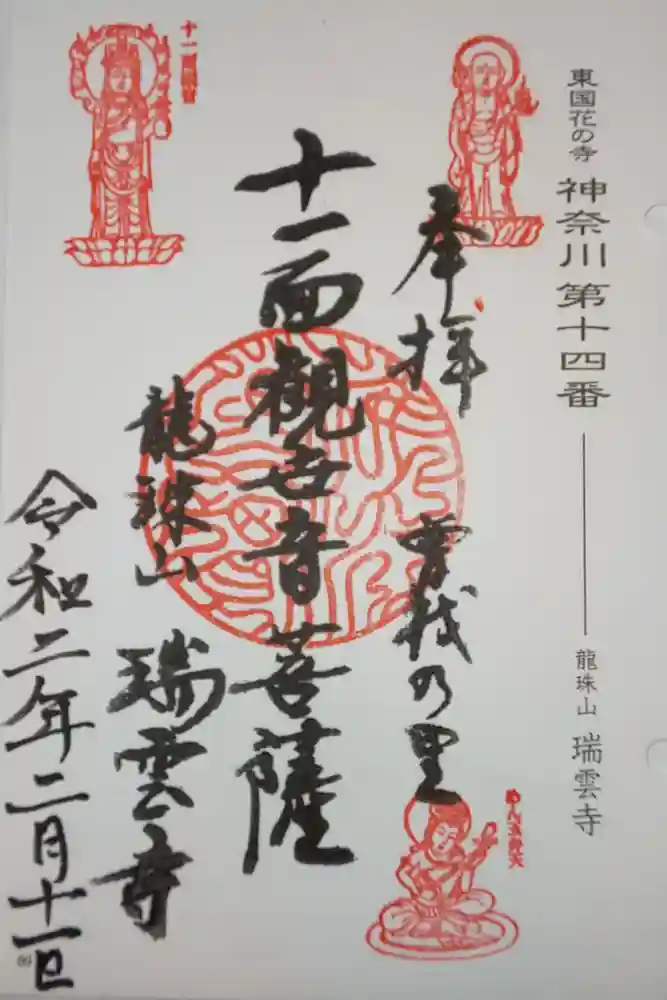 東国花の寺 神奈川第十四番 龍珠山 瑞雲寺
奉拝 曽我の里
十一面観世音菩薩
龍珠山 瑞雲寺
令和二年二月十一日
十一面観音